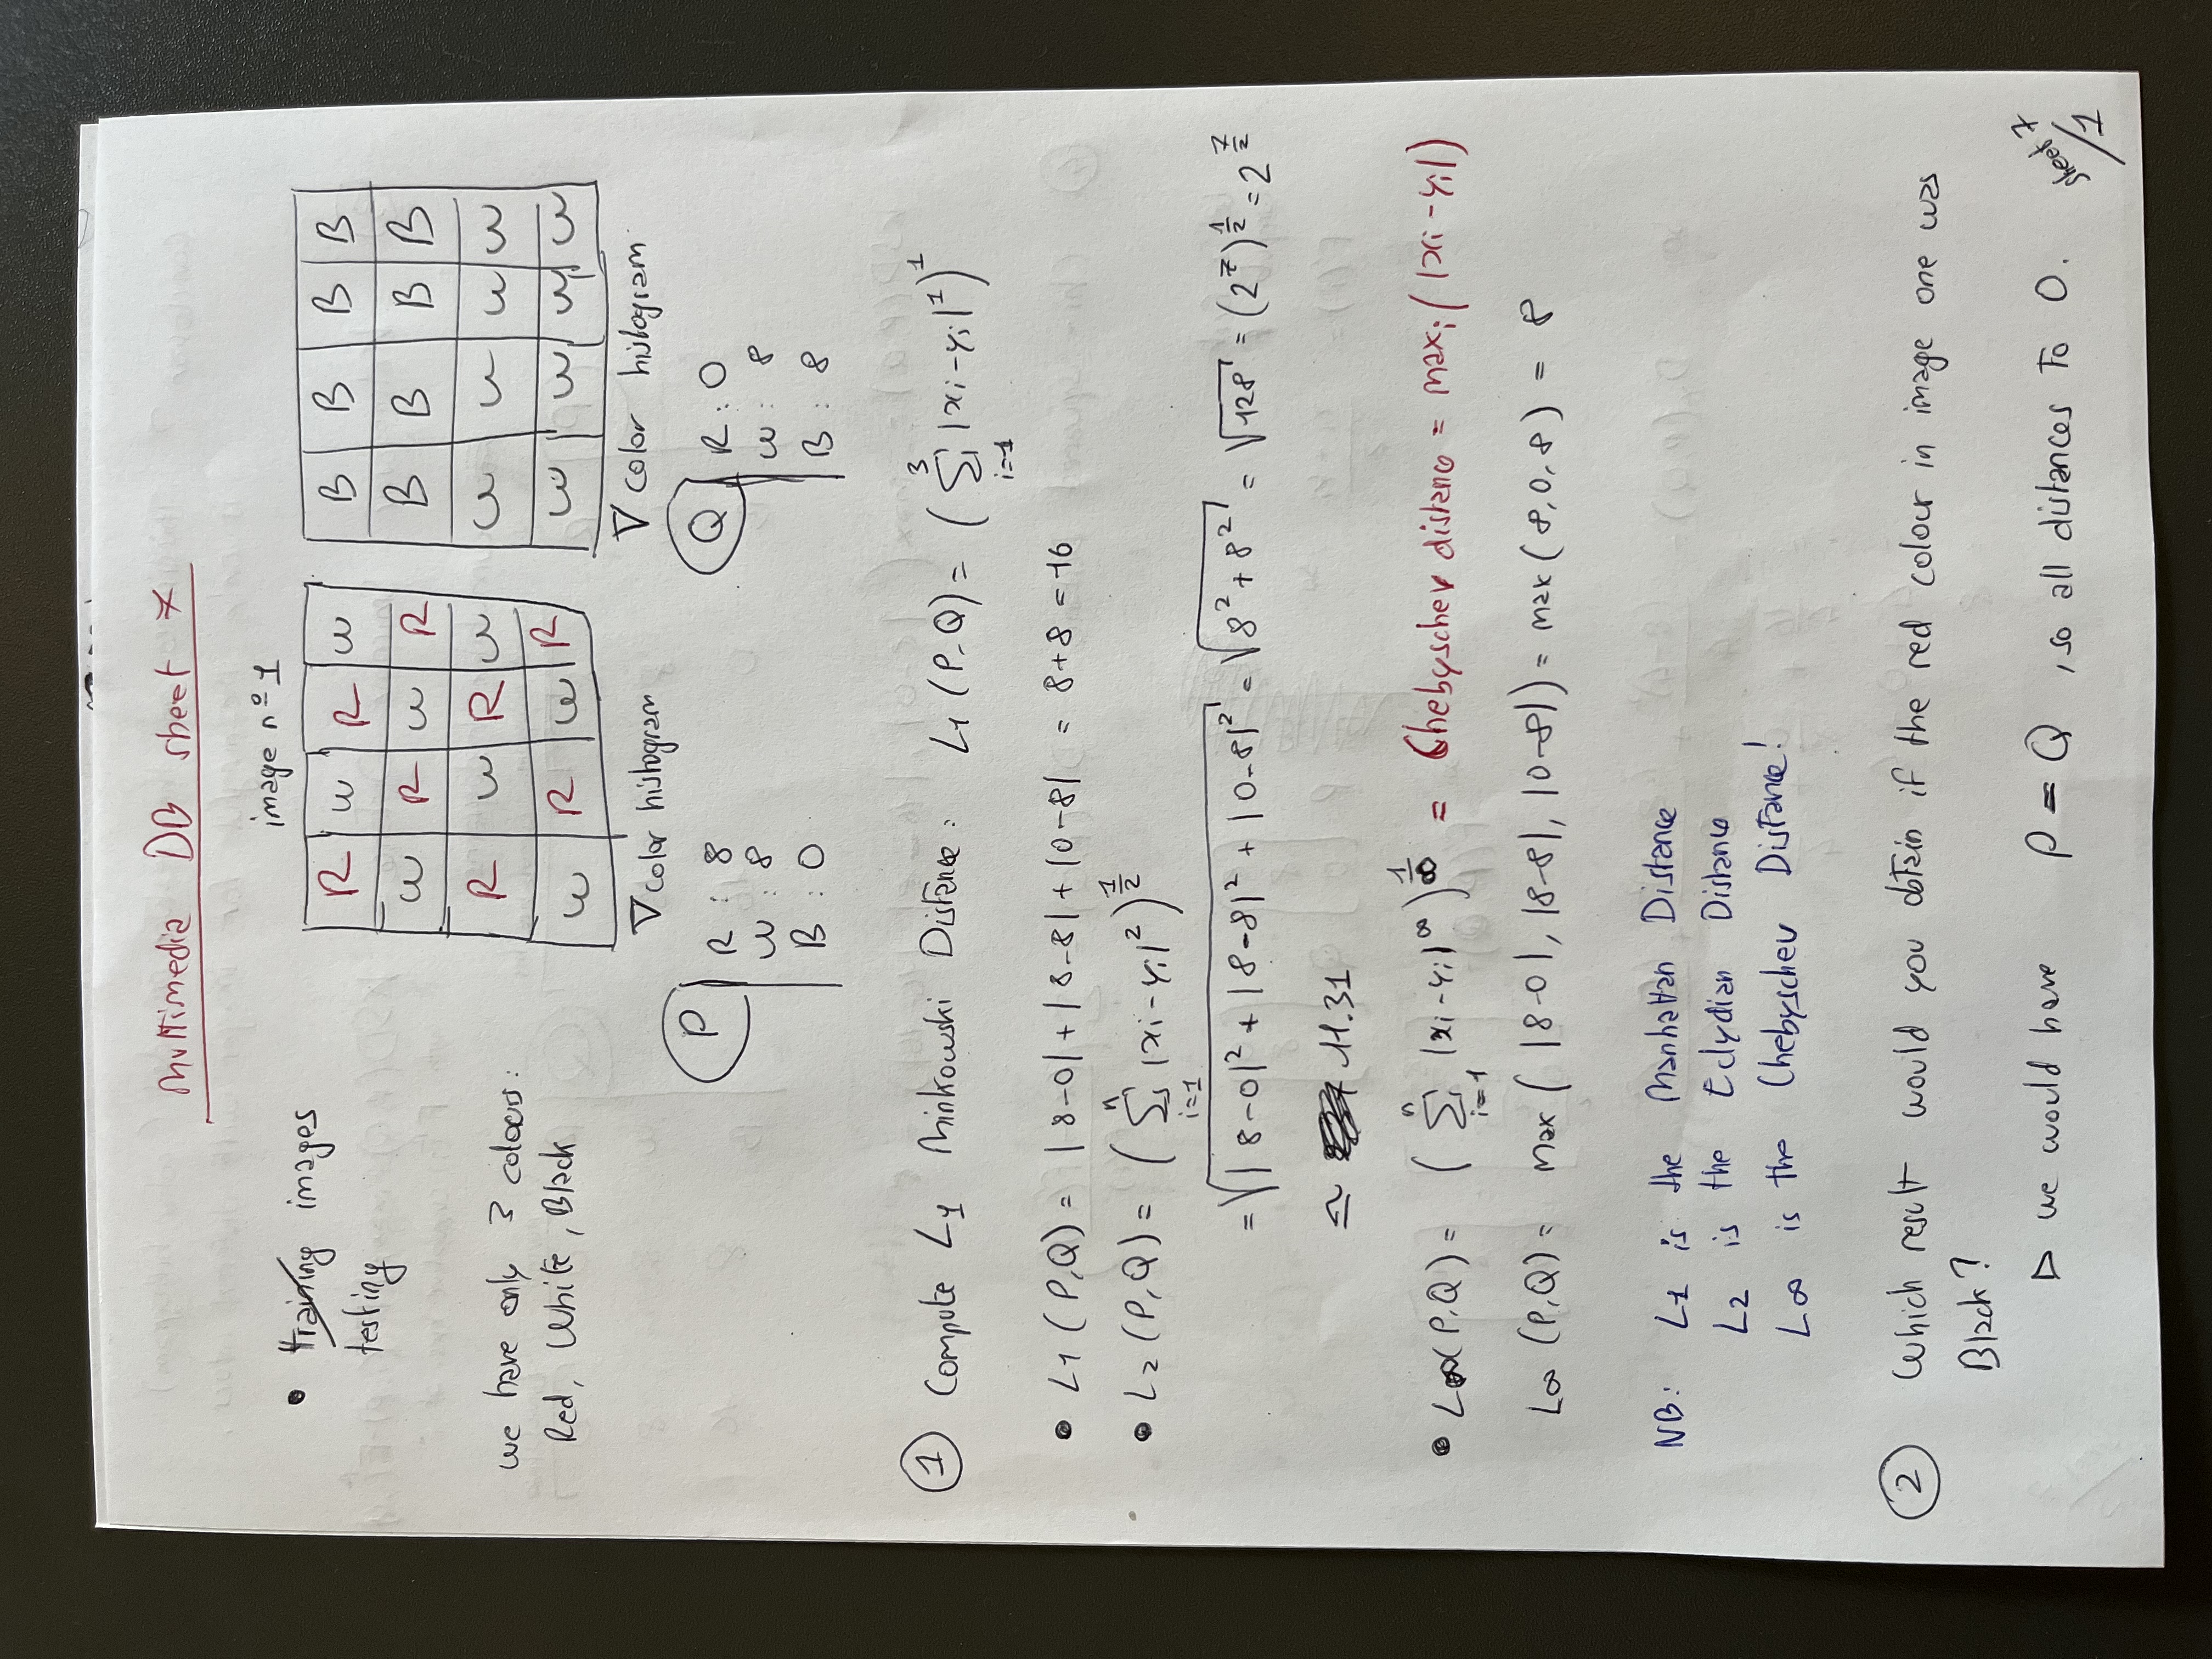 Multimedia DB sheet 7
image nº 1
• training images
testing
we have only 3 colours:
Red, White, Black
R W R W
W R W R
R W R W
W R W R
B B B B
B B B B
W W W W
W W W W
▽ color histogram
▽ color histogram
P
R : 8
W : 8
B : 0
Q
R : 0
W : 8
B : 8
① Compute L₁ Minkowski Distance: L₁ (P,Q) = ( ∑ᵢ₌₁³ |xᵢ-yᵢ|¹ )¹
• L1 (P,Q) = |8-0| + |8-8| + |0-8| = 8+8 = 16
• L₂ (P,Q) = ( ∑ᵢ₌₁ⁿ |xᵢ-yᵢ|² )^(1/2)
= √(|8-0|² + |8-8|² + |0-8|²) = √(8²+8²) = √128 = (2⁷)^(1/2) = 2^(7/2)
≃ 11.31
• L∞(P,Q) = ( ∑ᵢ₌₁ⁿ |xᵢ-yᵢ|^∞ )^(1/∞) = Chebyschev distance = maxᵢ( |xᵢ-yᵢ| )
L∞ (P,Q) = max ( |8-0|, |8-8|, |0-8| ) = max (8,0,8) = 8
NB: L1 is the Manhattan Distance
L2 is the Eclydian Distance
L∞ is the Chebyschev Distance!
② Which result would you obtain if the red colour in image one was
Black?
▷ we would have P = Q , so all distances to 0.
sheet 7
/1